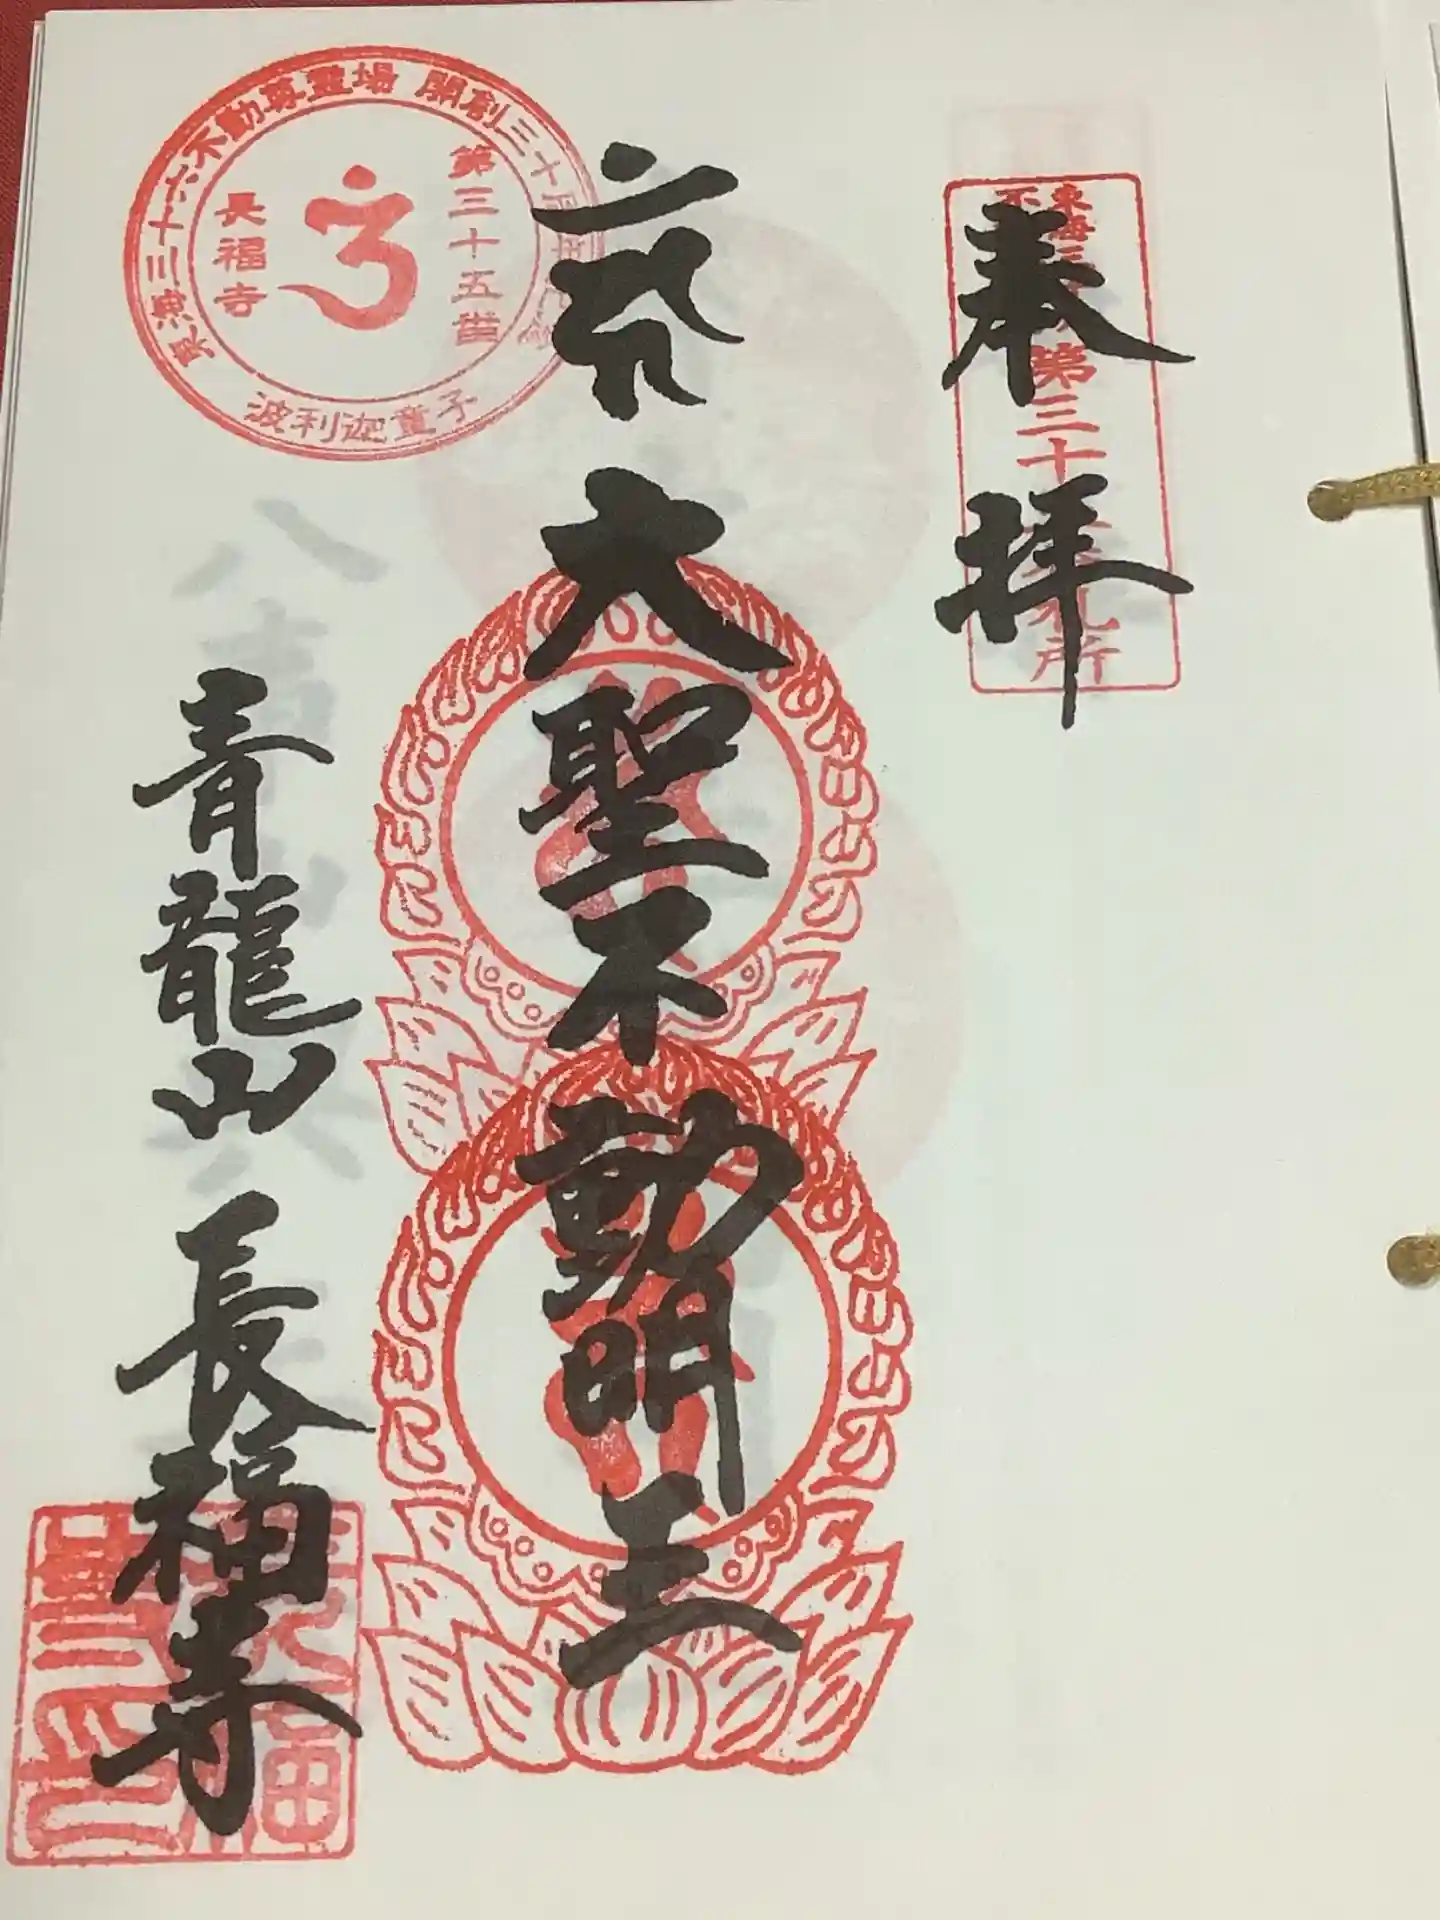 奉拝
東海三十
不
第三十
札所
大聖不動明王
東海三十六不動尊霊場 開創三十周年
第三十五番
長福寺
波利迦童子
青龍山 長福寺